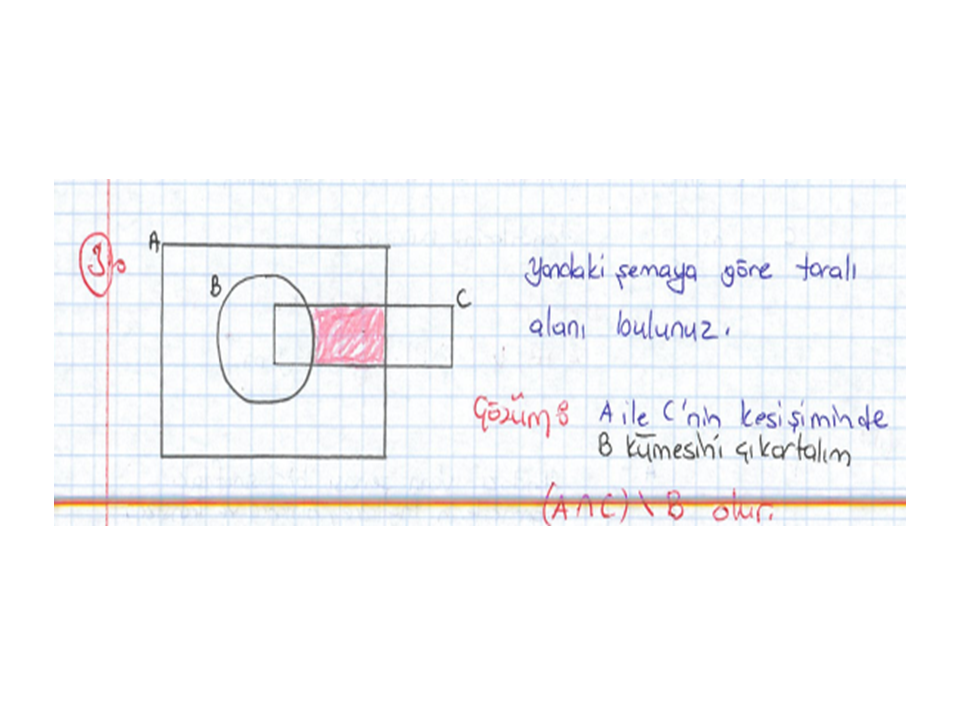 3)
A
B
C
Yandaki şemaya göre taralı
alanı bulunuz.
Çözüm: A ile C'nin kesişiminde
B kümesini çıkartalım
(A∩C) \ B olur.